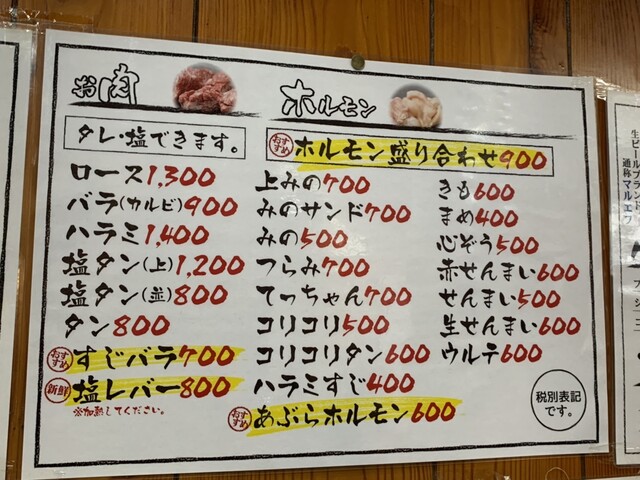 お肉
タレ・塩できます。
ロース1,300
バラ(カルビ)900
ハラミ1,400
塩タン(上)1,200
塩タン(並)800
タン800
おすすめ すじバラ700
新鮮 塩レバー800
※加熱してください。
ホルモン
おすすめ ホルモン盛り合わせ900
上みの700
みのサンド700
みの500
つらみ700
てっちゃん700
コリコリ500
コリコリタン600
ハラミすじ400
おすすめ あぶらホルモン600
きも600
まめ400
心ぞう500
赤せんまい600
せんまい500
生せんまい600
ウルテ600
税別表記
です。
生ビールブランド
通称マルエフ